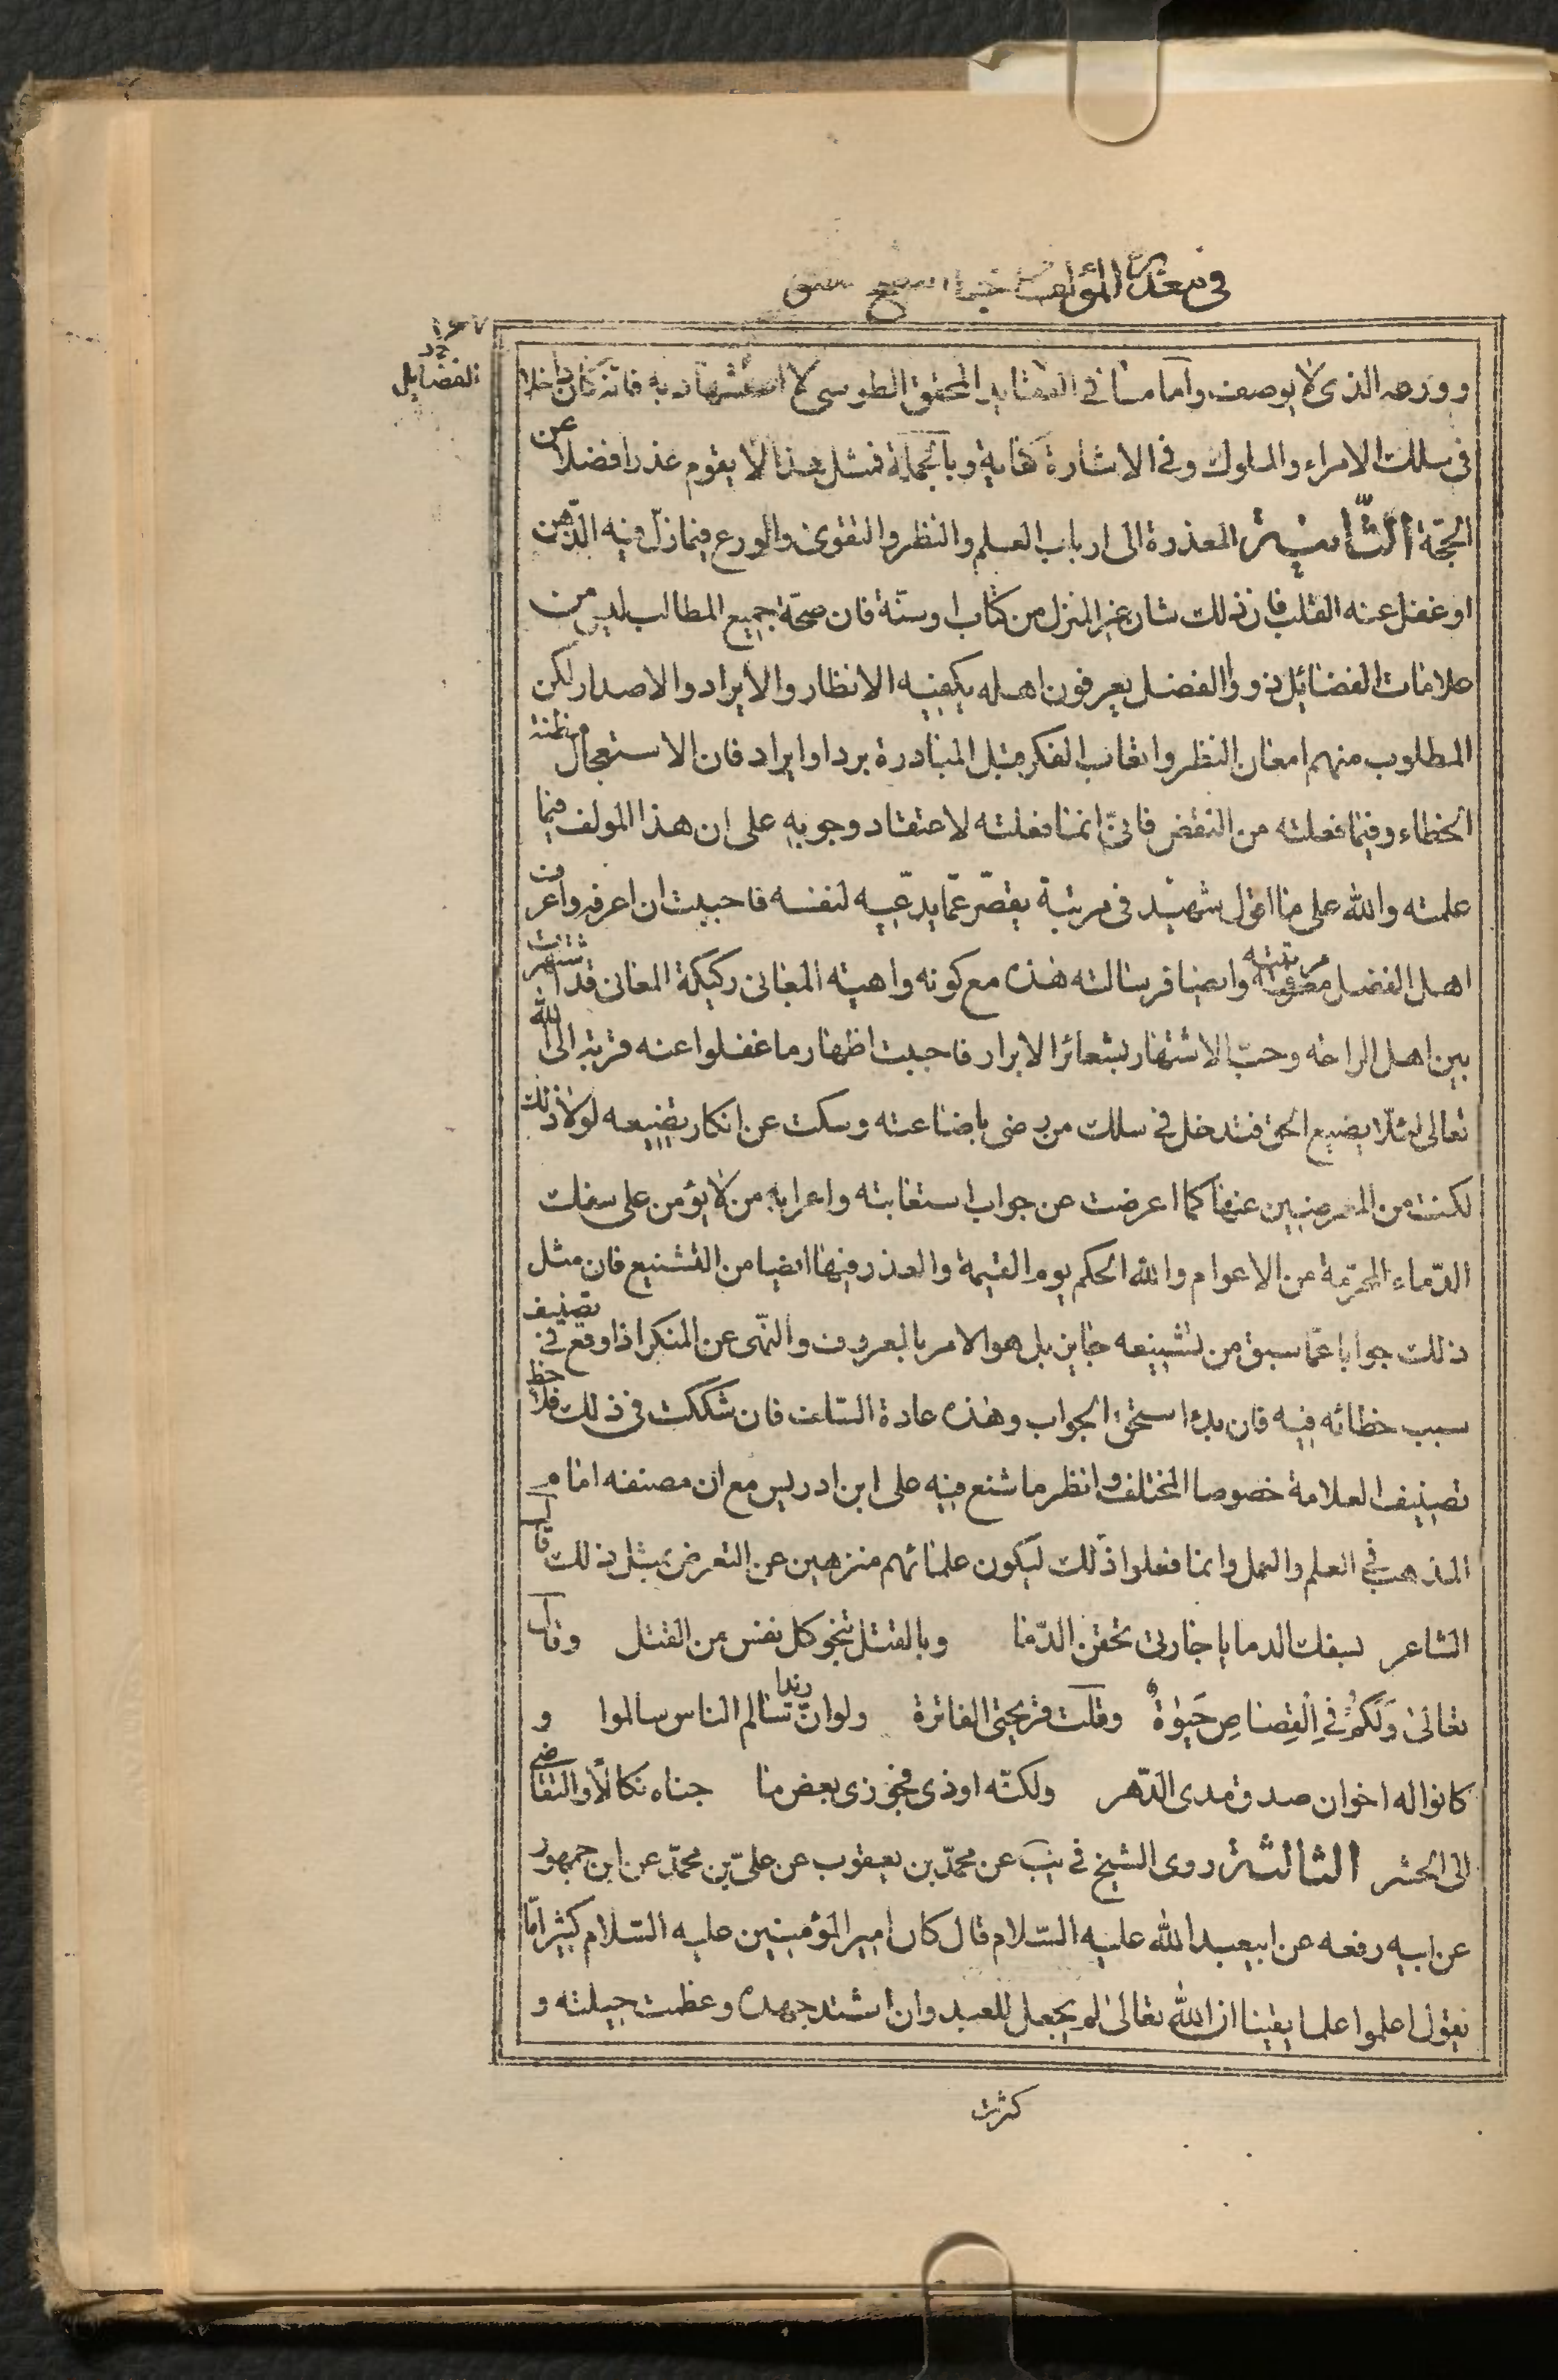 في معذرة المؤلف
الفضايل
وورعه الذي لا يوصف واما منا في العقايد المحقق الطوسي لا استشهاد به فانه كان داخلا
في سلك الامراء والملوك وفي الاشارة كفاية وبالجملة فمثل هذا لا يقوم عذرا فضلا عن
الحجّة الثّانية المعذرة الى ارباب العلم والنظر والتقوى والورع فيما زلّ فيه الذّهن
او غفل عنه القلب فان ذلك شان غير المنزل من كتاب او سنّة فان صحّة جميع المطالب ليس من
علامات الفضائل ذووا الفضل يعرفون اهله بكيفيه الانظار والايراد والاصدار لكن
المطلوب منهم امعان النظر واتعاب الفكر قبل المبادرة برد او ايراد فان الاستعجال مظنة
الخطاء وفيما فعلته من النقض فانيّ انما فعلته لاعتقاد وجوبه على ان هذا المولف فيما
علمته والله على ما اقول شهيد في مرتبة يقصّر عمّا يدّعيه لنفسه فاحببت ان اعرفه واعرف
اهل الفضل مرتبته وايضا فرسالته هذه مع كونه واهية المباني ركيكة المعاني قد اشتهرت
بين اهل الراحه وحبّ الاشتهار بشعائر الابرار فاحببت اظهار ما غفلوا عنه قربة الى الله
تعالى لئلّا يضيع الحق فتدخل في سلك من رضى باضاعته وسكت عن انكار تضييعه لولا ذلك
لكنت من المعرضيين عنها كما اعرضت عن جواب استغابته واغرابه من لا يؤمن على سفك
الدّماء المحرّمة من الاعوام والله الحكم يوم القيمة والعذر فيها ايضا من التشنيع فان مثل
ذلك جوابا عمّا سبق من تشنيعه جايز بل هو الامر بالمعروف والنّهى عن المنكر اذا وقع في تصنيف
سبب خطائه فيه فان بدء استحق الجواب وهذه عادة السّلف فان شككت في ذلك فلاحظ
تصنيف العلامة خصوصا المختلف وانظر ما شنع فيه على ابن ادريس مع ان مصنفه امام
المذهب في العلم والعمل وانما فعلوا ذلك ليكون علمائهم منزهين عن التعرض بمثل ذلك قال
الشاعر بسفك الدما يا جارتي تحقن الدّما وبالقتل تنجو كل نفس من القتل وقال
تعالى وَلَكُمْ فِي الْقِصَاصِ حَيٰوةٌ وقلت قريحتي الفاترة ولو انّ زيدا سالم الناس سالموا و
كانوا له اخوان صدق مدى الدّهر ولكنّه اوذى فجوزى ببعض ما جناه نكالًا والتقاضي
الى الحشر الثالثة روى الشيخ في يب عن محمّد بن يعقوب عن عليّ بن محمّد عن ابن جمهور
عن ابيه رفعه عن ابيعبد الله عليه السّلام قال كان امير المؤمنين عليه السّلام كثيرا مّا
يقول اعلموا علما يقينا ان الله تعالى لم يجعل للعبد وان اشتد جهده وعظمت حيلته و
كثرت